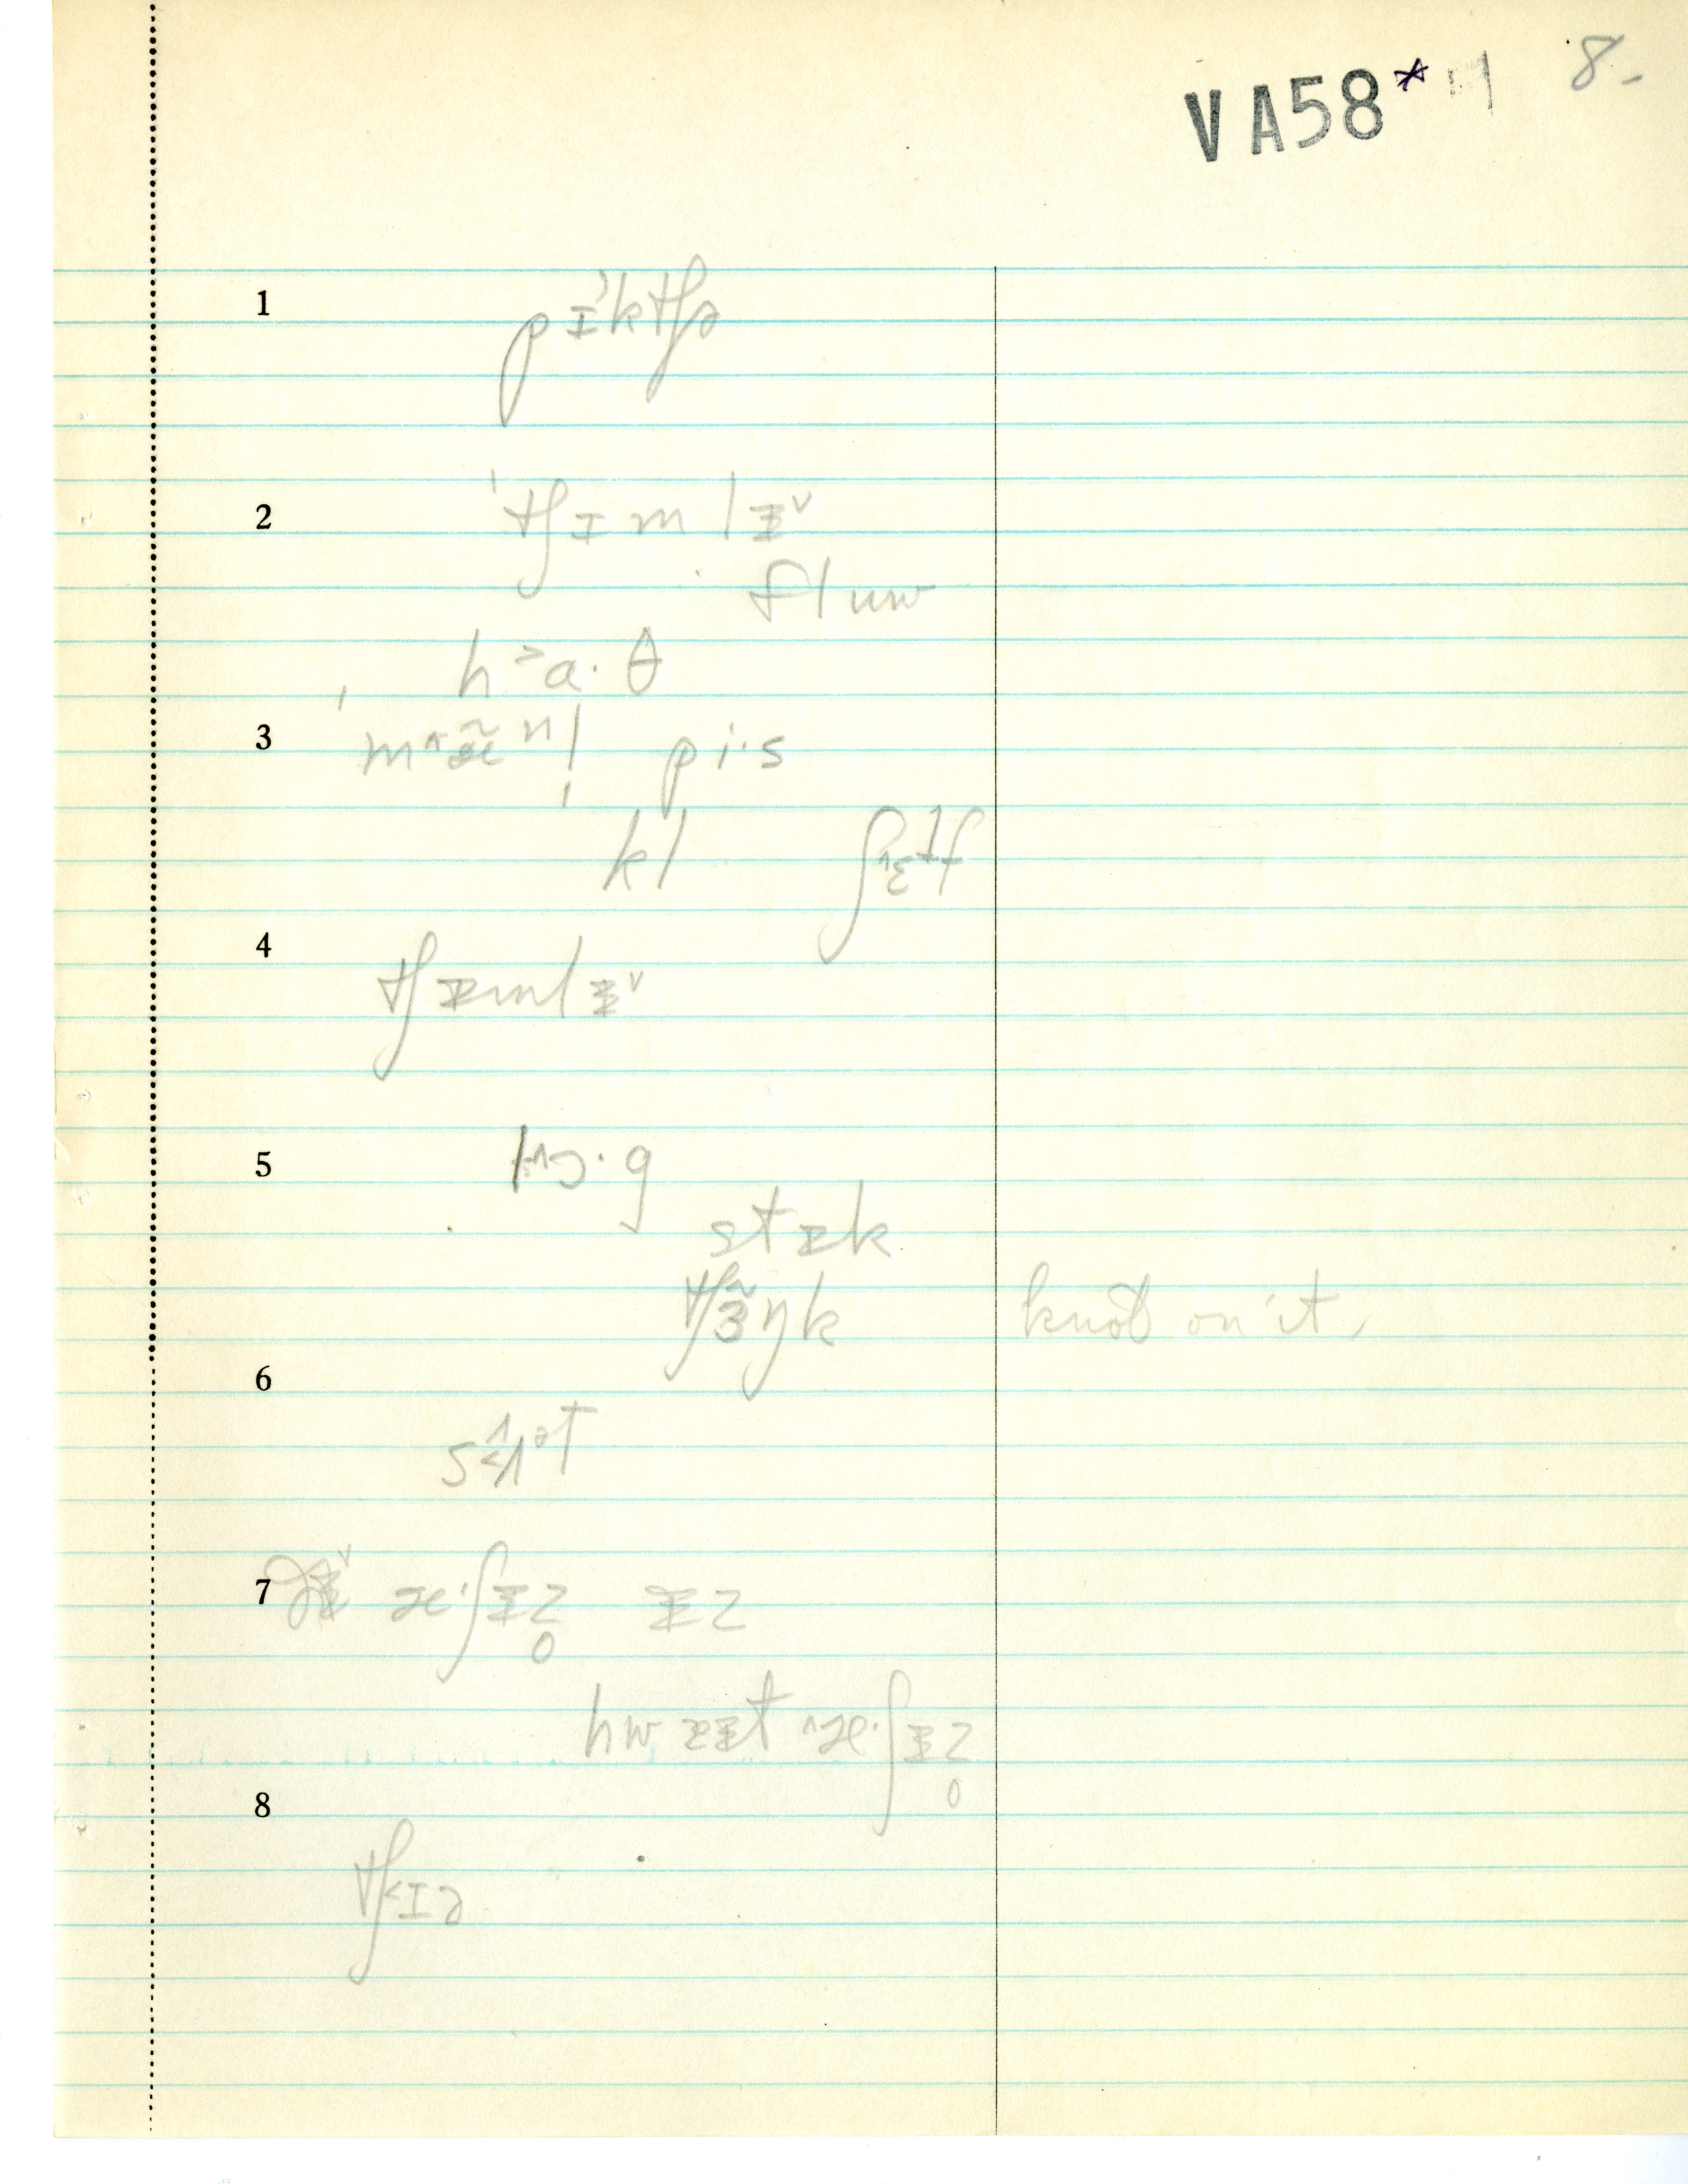 VA58* 8-
1 pɪ'ktʃə
2 'tʃɪmlɪ̵ᵛ
fluw
h˃a·θ
3 ˈm^æ̃n!ˌ pi·s
kl ʃ^ɛlf
4 tʃɪ̵mlɪ̵ᵛ
5 l^ɔ·g
stɪ̵k
tʃɜ̃ŋk knot on it,
6
sʌᵊt
7 ðɪ̵ᵛ æ·ʃɪ̵z̥ ɪ̵z
hwɪ̵t ^æ·ʃɪ̵z̥
8
tʃ˂ɪə